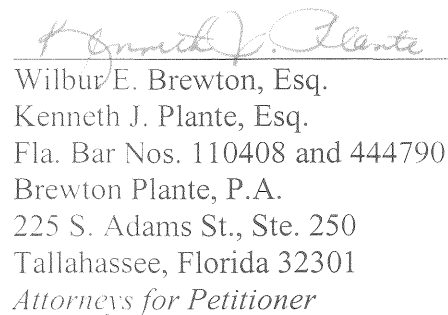 Kenneth J. Plante
Wilbur E. Brewton, Esq.
Kenneth J. Plante, Esq.
Fla. Bar Nos. 110408 and 444790
Brewton Plante, P.A.
225 S. Adams St., Ste. 250
Tallahassee, Florida 32301
Attorneys for Petitioner